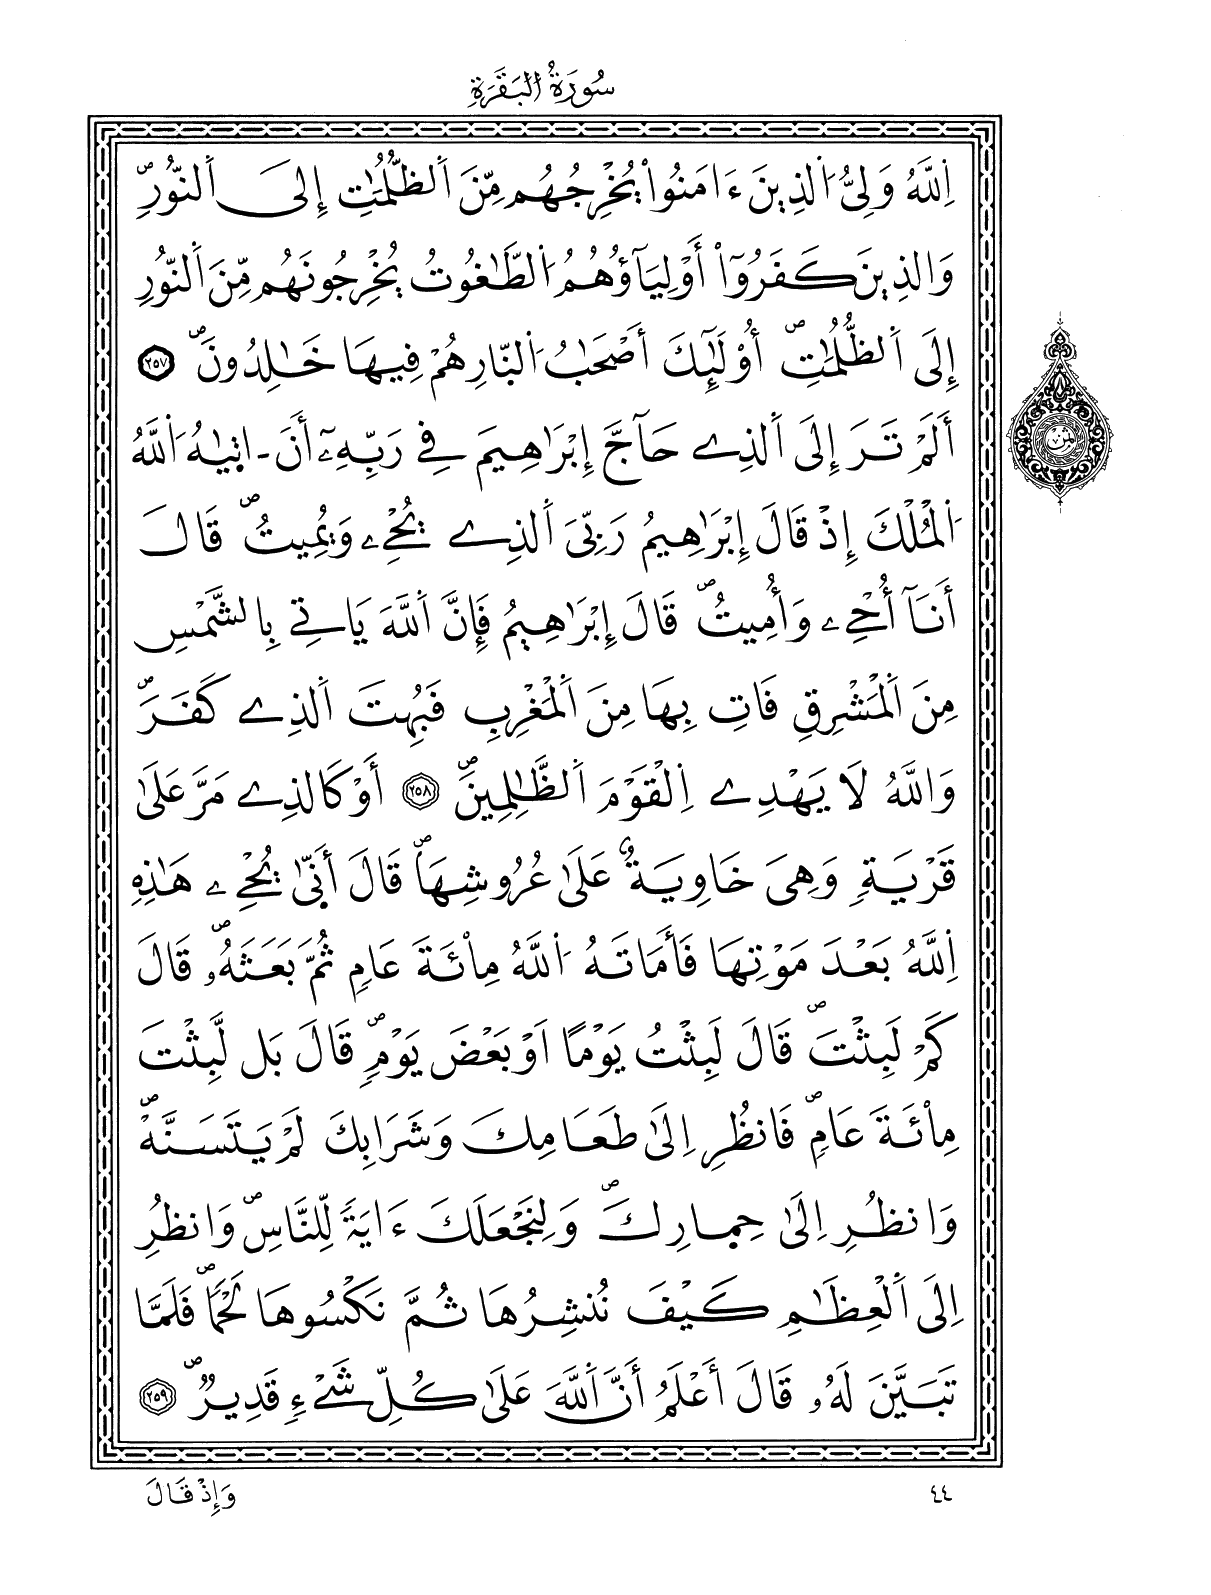 سُورَةُ البَقَرَةِ
اِ۬للَّهُ وَلِيُّ اُ۬لذِينَ ءَامَنُواْ يُخْرِجُهُم مِّنَ اَ۬لظُّلُمَٰتِ إِلَى اَ۬لنُّورِۖ
وَالذِينَ كَفَرُوٓاْ أَوْلِيَآؤُهُمُ اُ۬لطَّٰغُوتُ يُخْرِجُونَهُم مِّنَ اَ۬لنُّورِ
إِلَى اَ۬لظُّلُمَٰتِۖ أُوْلَٰٓئِكَ أَصْحَٰبُ اُ۬لنّ۪ارِ هُمْ فِيهَا خَٰلِدُونَۖ ٢٥٧
أَلَمْ تَرَ إِلَى اَ۬لذِے حَآجَّ إِبْرَٰهِيمَ فِے رَبِّهِۦٓ أَنَ اتِيٰهُ اُ۬للَّهُ
اُ۬لْمُلْكَ إِذْ قَالَ إِبْرَٰهِيمُ رَبِّيَ اَ۬لذِے يُحْيِۦ وَيُمِيتُۖ قَالَ
أَنَآ أُحْيِۦ وَأُمِيتُۖ قَالَ إِبْرَٰهِيمُ فَإِنَّ اَ۬للَّهَ يَاتِے بِالشَّمْسِ
مِنَ اَ۬لْمَشْرِقِ فَاتِ بِهَا مِنَ اَ۬لْمَغْرِبِ فَبُهِتَ اَ۬لذِے كَفَرَۖ
وَاللَّهُ لَا يَهْدِے اِ۬لْقَوْمَ اَ۬لظَّٰلِمِينَۖ ٢٥٨ أَوْ كَالذِے مَرَّ عَلَىٰ
قَرْيَةٖ وَهِيَ خَاوِيَةٌ عَلَىٰ عُرُوشِهَاۖ قَالَ أَنّ۪ىٰ يُحْيِۦ هَٰذِهِ
اِ۬للَّهُ بَعْدَ مَوْتِهَا فَأَمَاتَهُ اُ۬للَّهُ مِاْئَةَ عَامٖ ثُمَّ بَعَثَهُۥۖ قَالَ
كَمْ لَبِثْتَۖ قَالَ لَبِثْتُ يَوْمًا اَوْ بَعْضَ يَوْمٖۖ قَالَ بَل لَّبِثْتَ
مِاْئَةَ عَامٖۖ فَانظُرِ اِلَىٰ طَعَامِكَ وَشَرَابِكَ لَمْ يَتَسَنَّهْۖ
وَانظُرِ اِلَىٰ حِمارِكَۖ وَلِنَجْعَلَكَ ءَايَةٗ لِّلنَّاسِۖ وَانظُرِ
اِلَى اَ۬لْعِظَٰمِ كَيْفَ نُنشِرُهَا ثُمَّ نَكْسُوهَا لَحْماٗۖ فَلَمَّا
تَبَيَّنَ لَهُۥ قَالَ أَعْلَمُ أَنَّ اَ۬للَّهَ عَلَىٰ كُلِّ شَےْءٖ قَدِيرٞۖ ٢٥٩
٤٤
وَإِذْ قَالَ
ثمن